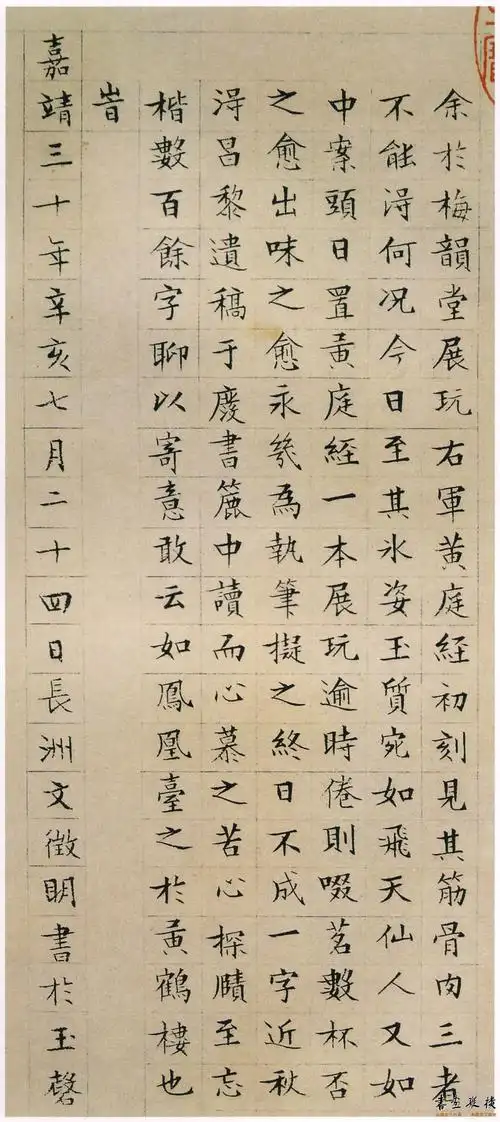 余於梅韻堂展玩右軍黄庭經初刻見其筋骨肉三者
不能淂何况今日至其氷姿玉質宛如飛天仙人又如
中案頭日置黄庭經一本展玩逾時倦則啜茗數杯否
之愈出味之愈永幾為執筆擬之終日不成一字近秋
淂昌黎遺稿于慶書簏中讀而心慕之苦心探賾至忘
楷數百餘字聊以寄意敢云如鳳凰臺之於黄鶴樓也
旹
嘉靖三十年辛亥七月二十四日長洲文徵明書於玉磬